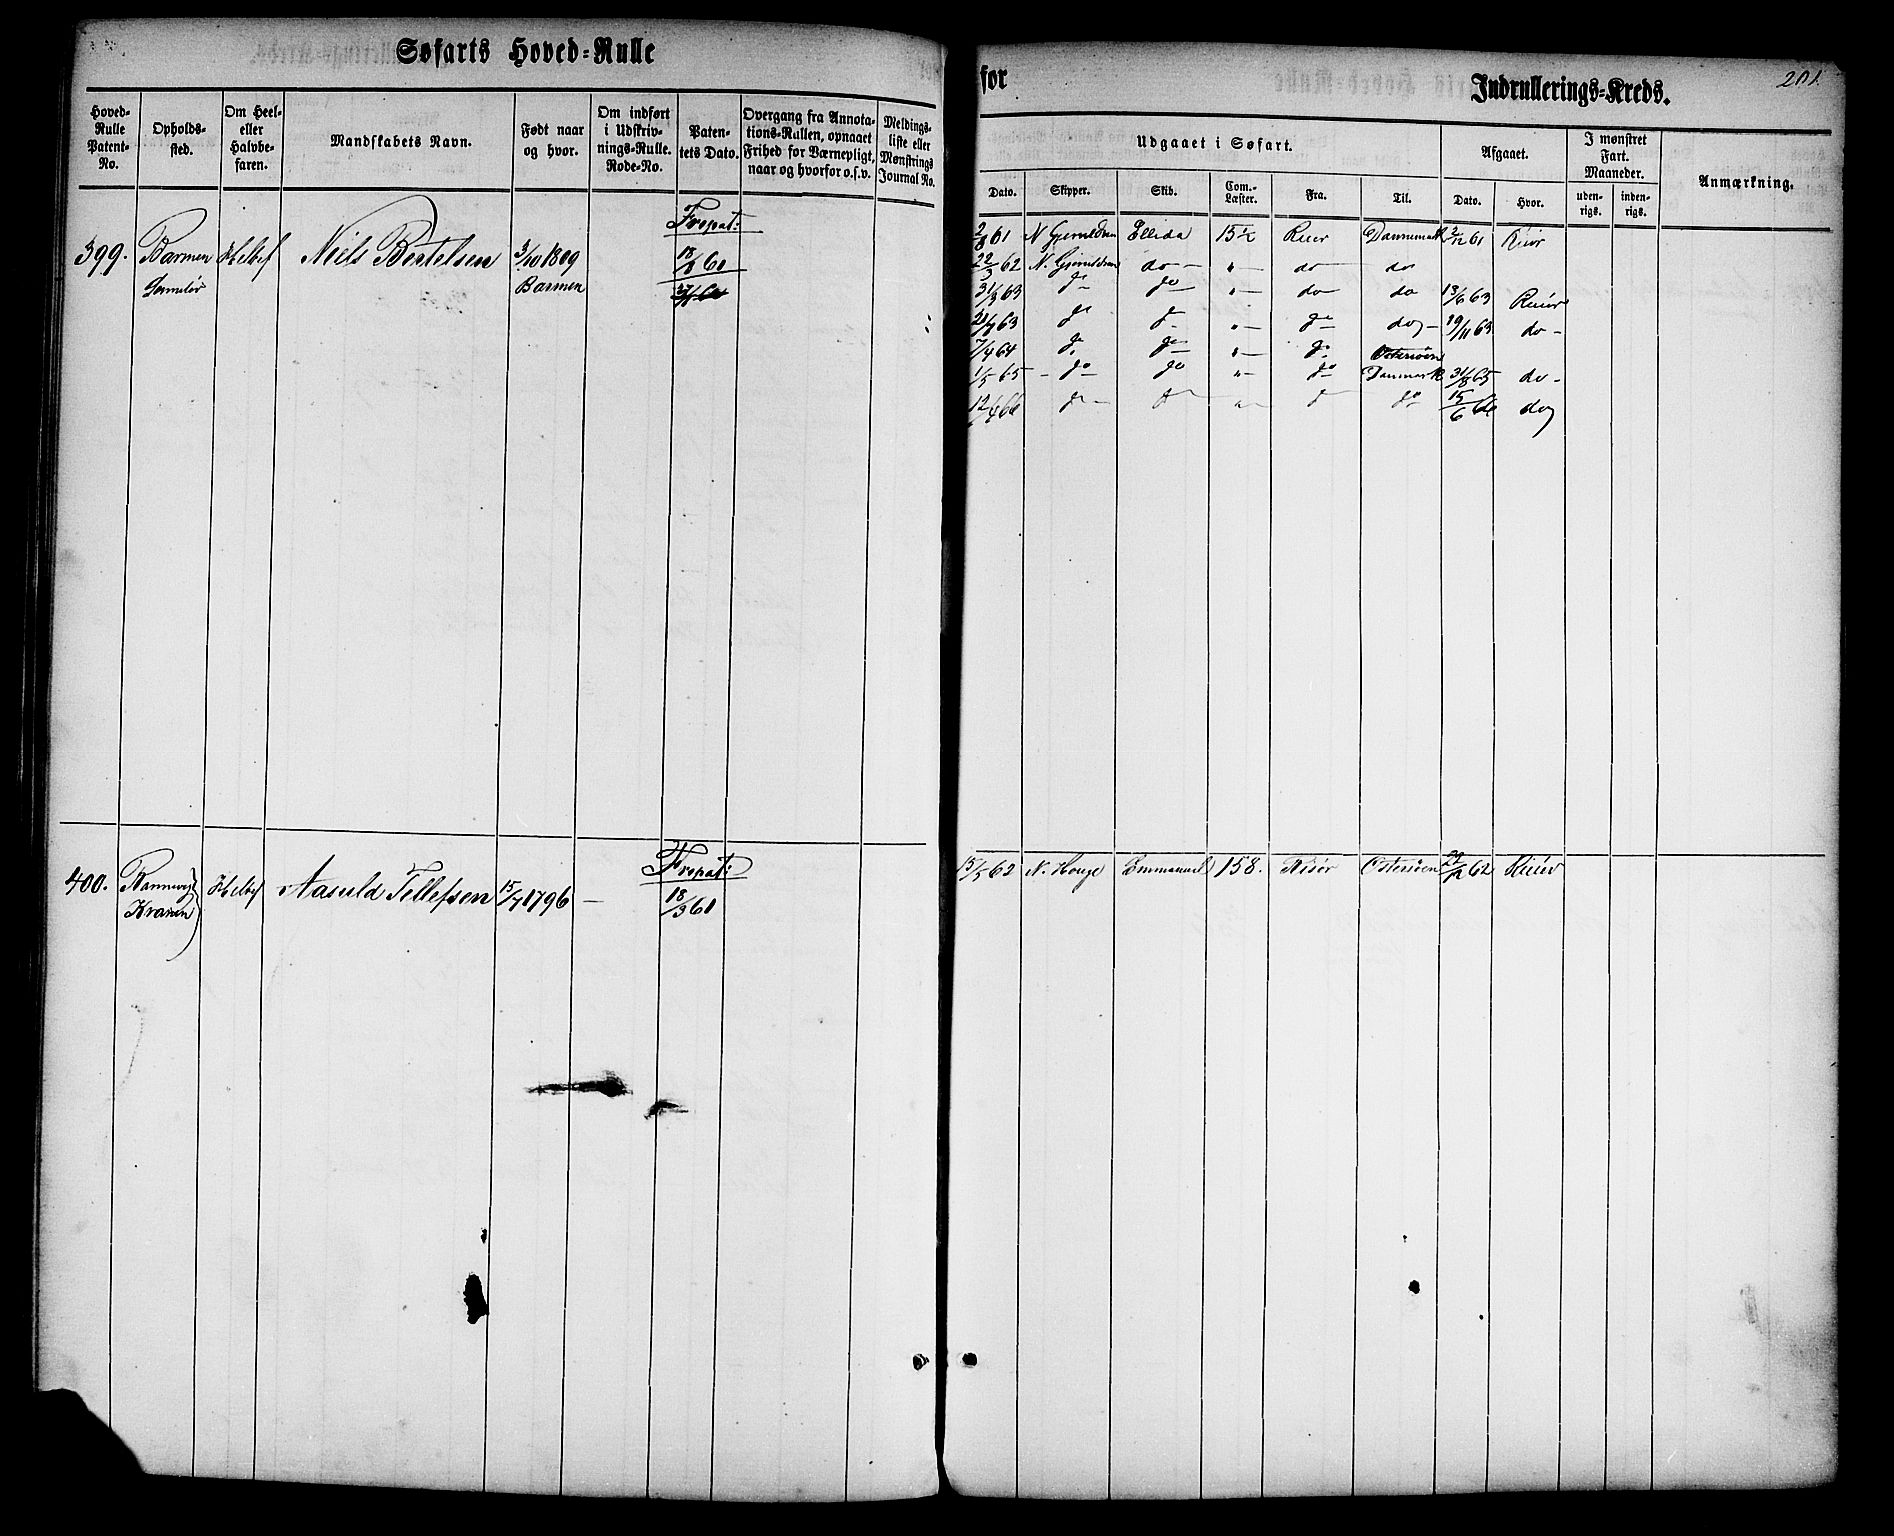 Søfarts Hoved=Rulle
for
Indrullerings=Kreds.
201.
Hoved-Rulle Patent-No.
Opholds-sted.
Om Heel- eller Halvbe-faren.
Mandskabets Navn.
Født naar og hvor.
Om indført i Udskriv-nings-Rulle. Rode-No.
Paten-tets Dato.
Overgang fra Annota-tions-Rullen, opnaaet Frihed for Værnepligt, naar og hvorfor o.s.v.
Meldings-liste eller Mønstrings Journal No.
Udgaaet i Søfart.
Afgaaet.
I mønstret Fart. Maaneder.
Anmærkning.
Dato. Skipper. Skib. Com.-Læster. Fra. Til. Dato. Hvor. uden-rigs. inden-rigs.
Fropat:
399. Barmen Helbef Niels Bertelsen 3/10 1809 60
Barmen
2/8 61 N Ellida 15 1/2 Riiør Dannemark 3/12 61 Riiør
22/3 62 N. do - " - do do
31/3 63 do do " - do do 13/6 63 Riiør
21/7 63 do do " - do do - 19/11 63 do -
7/4 64 do do " - do Østersöen
1/5 65 - do do " - do Danmark 31/8 65 do -
12/4 66 do - do " - do do 15/6 66 do
Fropat:
400. Helbef Aasuld Tellefsen 15/7 1796 - 18/3 61
Kranen
15/5 62 N. Houge Emmanuel 158. Risør Östersöen 62 Riisör